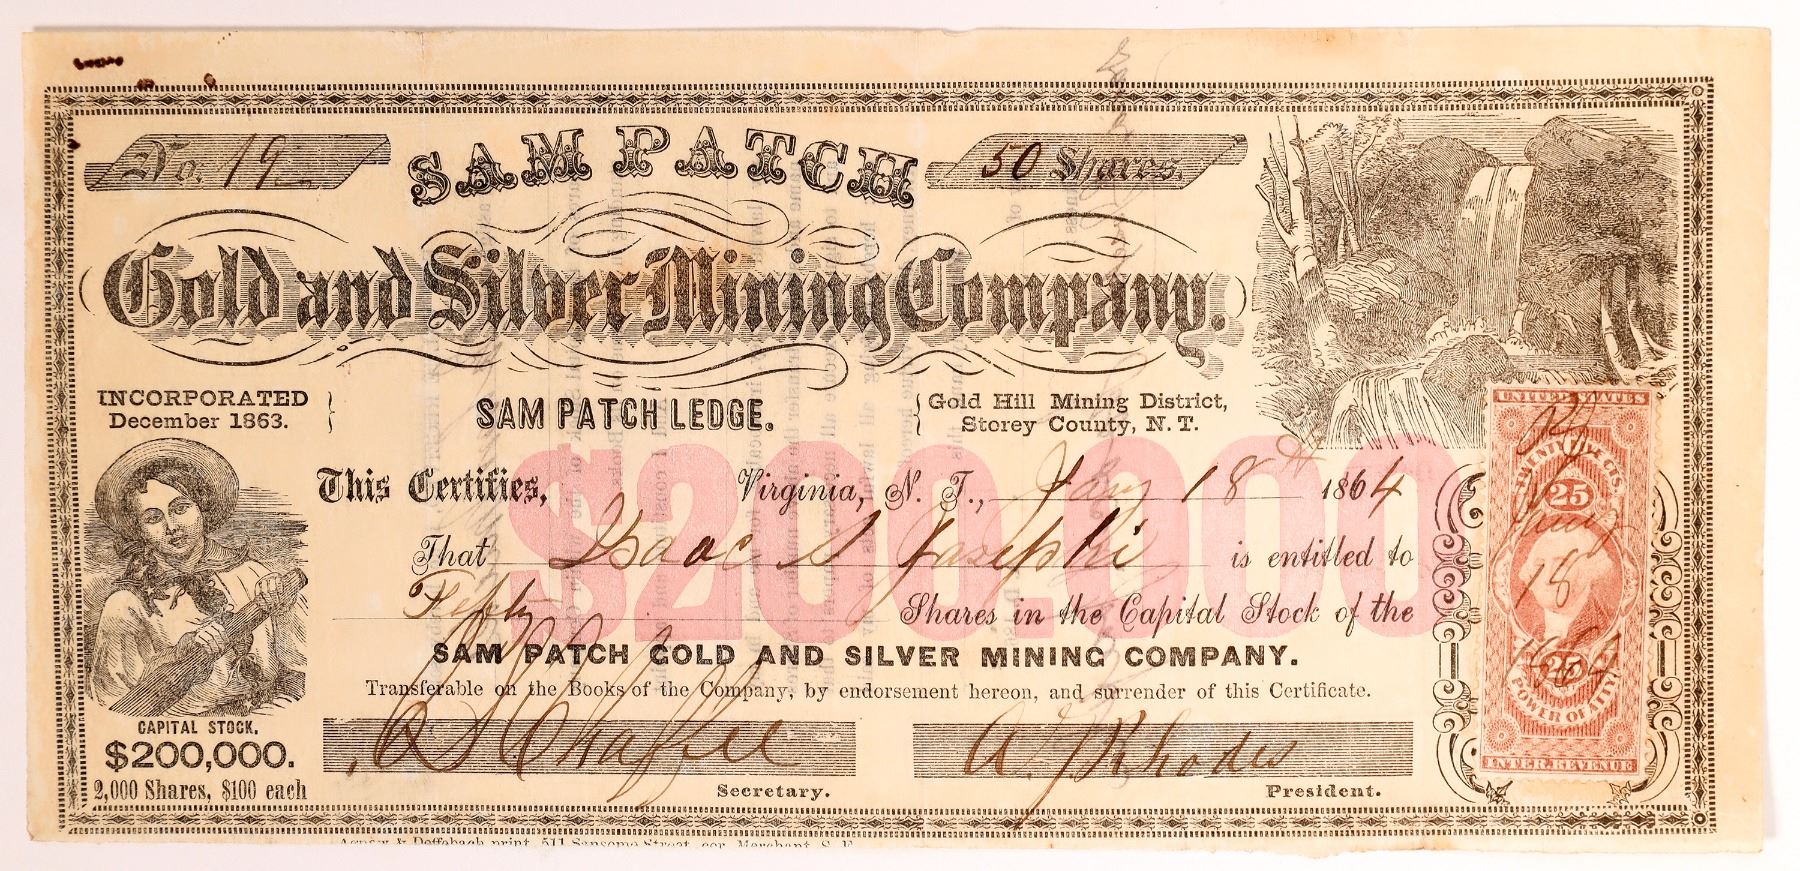 No. 19
SAM PATCH
50 Shares.
Gold and Silver Mining Company.
INCORPORATED
December 1863.
SAM PATCH LEDGE.
Gold Hill Mining District,
Storey County, N. T.
$200,000
This Certifies, Virginia, N. T., Jany 18th 1864
That Isaac S Josephi is entitled to
Fifty Shares in the Capital Stock of the
SAM PATCH GOLD AND SILVER MINING COMPANY.
Transferable on the Books of the Company, by endorsement hereon, and surrender of this Certificate.
CAPITAL STOCK,
$200,000.
2,000 Shares, $100 each
B S Chaffee
Secretary.
A. J. Rhodes
President.
UNITED STATES
TWENTY FIVE CTS.
25
Jany
18
1864
25
POWER OF ATT'Y
INTER. REVENUE
Agnew & Deffebach print, 511 Sansome Street, cor. Merchant, S. F.